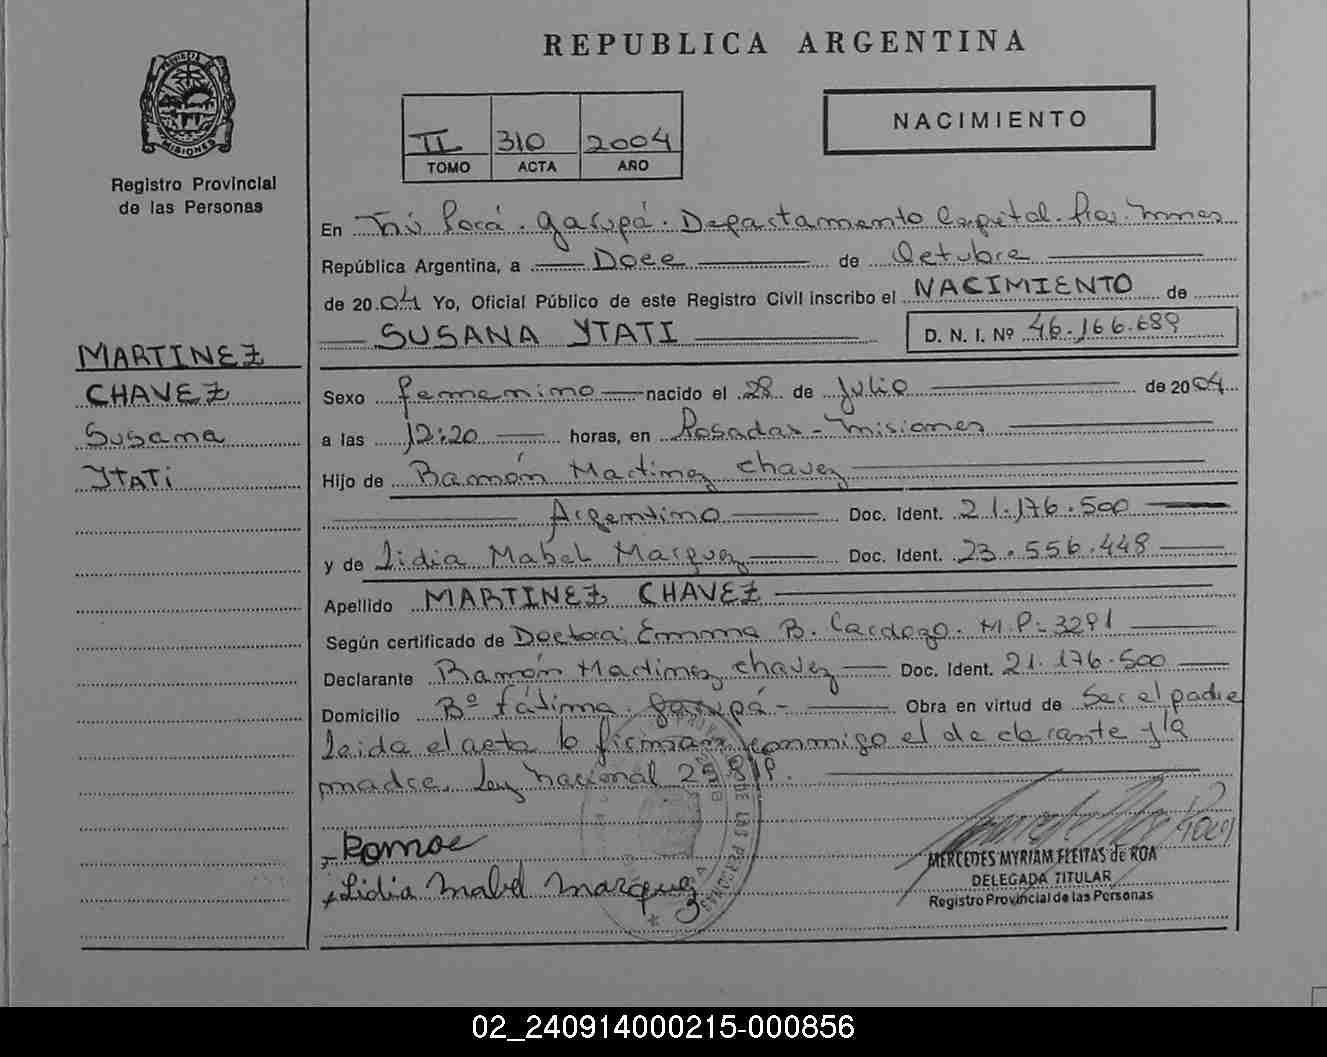 REPUBLICA ARGENTINA
MISIONES
Registro Provincial
de las Personas
II 310 2004
TOMO ACTA AÑO
NACIMIENTO
En Ñú Porá. Garupá. Departamento Capital. Pcia. Mnes
República Argentina, a Doce de Octubre
de 2004 Yo, Oficial Público de este Registro Civil inscribo el NACIMIENTO de
SUSANA YTATI D. N. I. Nº 46.166.689
MARTINEZ
CHAVEZ
Susana
YTATI
Sexo femenino nacido el 28 de Julio de 2004
a las 12:20 horas, en Posadas - Misiones
Hijo de Ramón Martinez Chavez
Argentino Doc. Ident. 21.176.500
y de Lidia Mabel Marquez Doc. Ident. 23.556.448
Apellido MARTINEZ CHAVEZ
Según certificado de Doctora: Emma B. Cardozo. M.P. 3291
Declarante Ramón Martinez Chavez Doc. Ident. 21.176.500
Domicilio Bº Fátima. Garupá - Obra en virtud de Ser el padre
leida el acta la firman conmigo el declarante y la
madre. Ley Nacional
DE LAS PERSONAS
Lidia Mabel Marquez
MERCEDES MYRIAM FLEITAS de ROA
DELEGADA TITULAR
Registro Provincial de las Personas
02_240914000215-000856